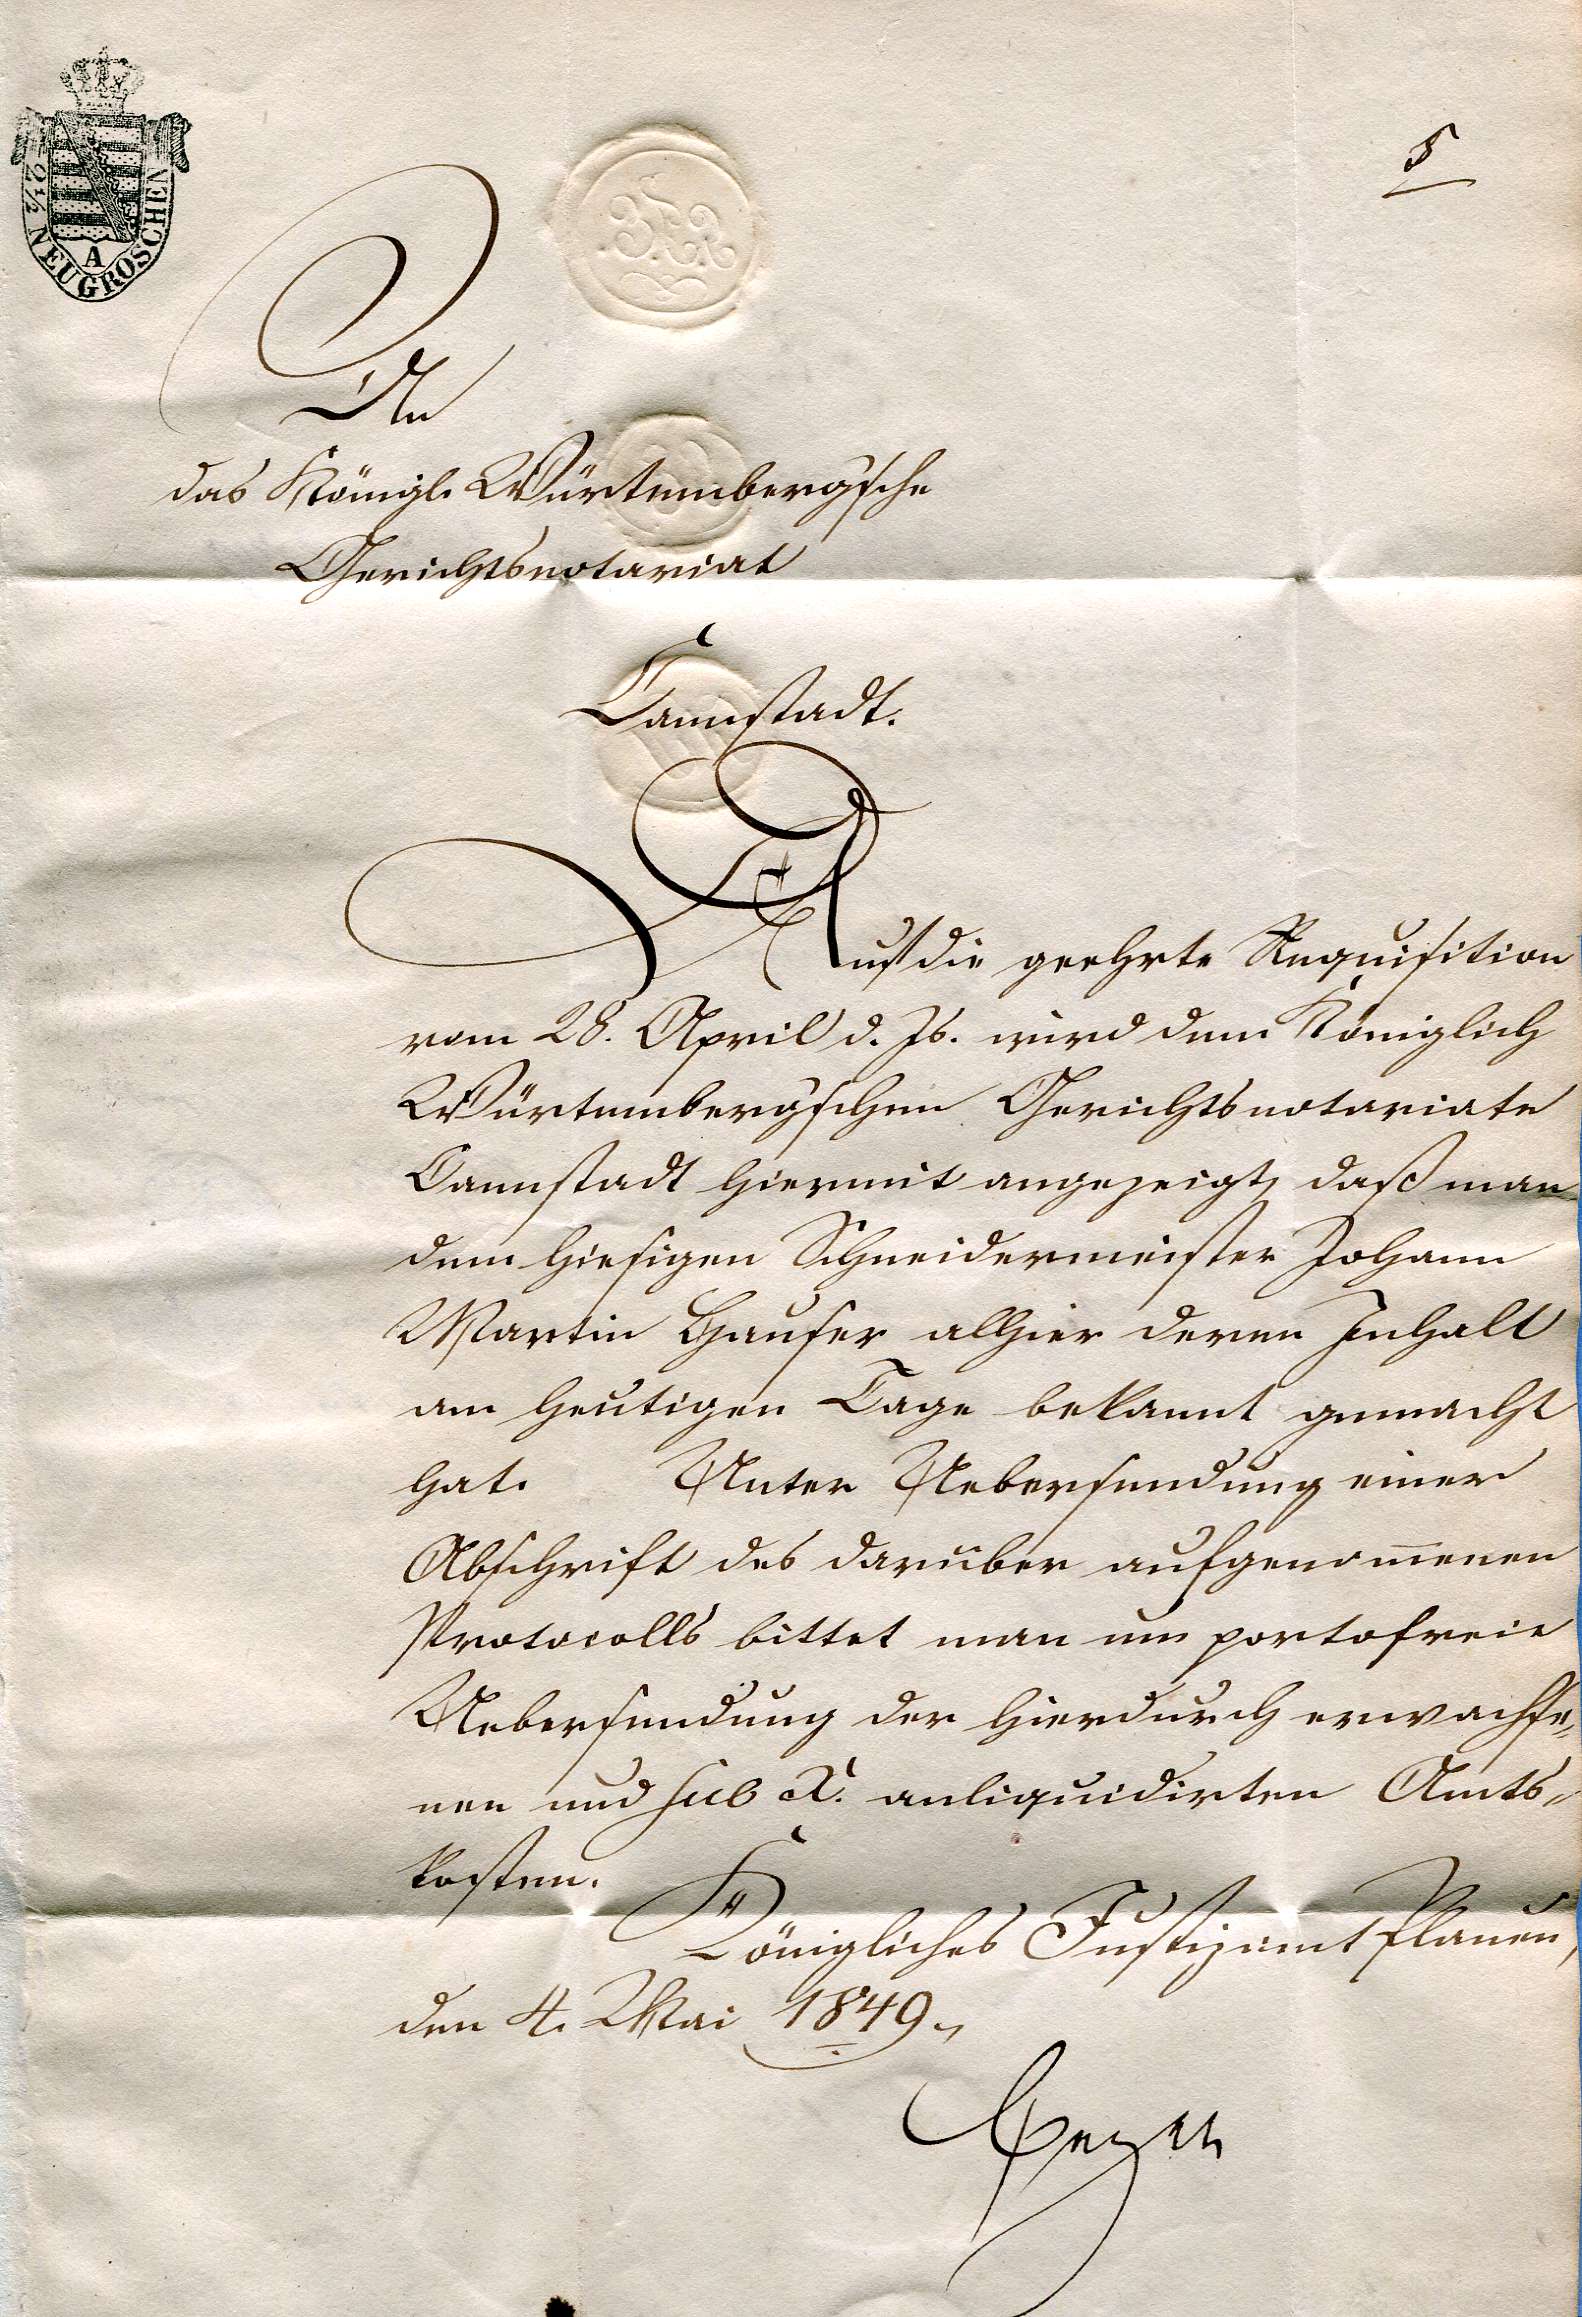 2½ NEUGROSCHEN
A
5
An
das Königl. Würtembergsche
Gerichtsnotariat
Cannstadt.
Auf die geehrte Requisition
vom 28. April d. Js. wird dem Königlich
Würtembergschen Gerichtsnotariate
Cannstadt hiermit angezeigt, daß man
dem hiesigen Schneidermeister Johann
Martin Hauser allhier deren Inhalt
am heutigen Tage bekannt gemacht
hat. Unter Uebersendung einer
Abschrift des darüber aufgenom̅enen
Protocolls bittet man um portofreie
Uebersendung der hierdurch erwachse„
nen und sub anliquidirten Amts„
kosten.
Königliches Justizamt Plauen,
den 4. Mai 1849.